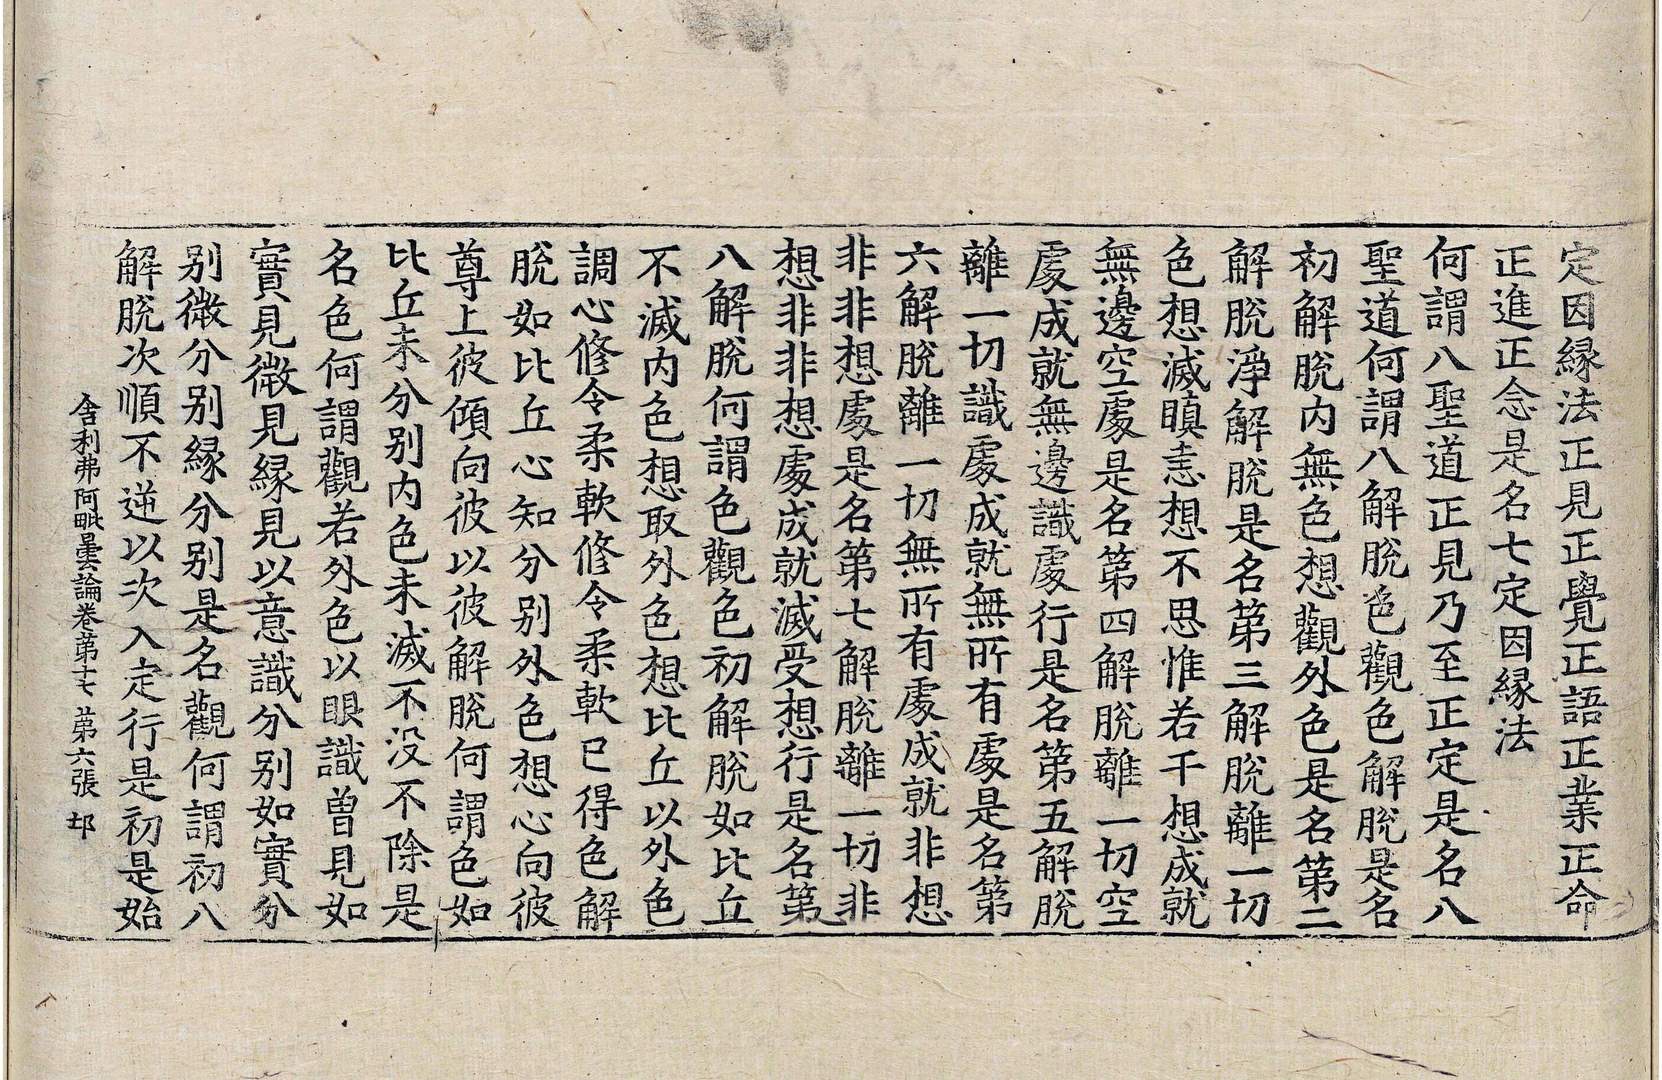 定因縁法正見正覺正語正業正命
正進正念是名七定因縁法
何謂八聖道正見乃至正定是名八
聖道何謂八解脫色觀色解脫是名
初解脫内無色想觀外色是名第二
解脫淨解脫是名第三解脫離一切
色想滅瞋恚想不思惟若干想成就
無邊空處是名第四解脫離一切空
處成就無邊識處行是名第五解脫
離一切識處成就無所有處是名第
六解脫離一切無所有處成就非想
非非想處是名第七解脫離一切非
想非非想處成就滅受想行是名第
八解脫何謂色觀色初解脫如比丘
不滅内色想取外色想比丘以外色
調心修令柔軟修令柔軟已得色解
脫如比丘心知分别外色想心向彼
尊上彼傾向彼以彼解脫何謂色如
比丘未分别内色未滅不没不除是
名色何謂觀若外色以眼識曽見如
實見微見縁見以意識分别如實分
别微分别縁分别是名觀何謂初八
解脫次順不逆以次入定行是初是始
舍利弗阿毗曇論卷第十七 第六張 𨚗